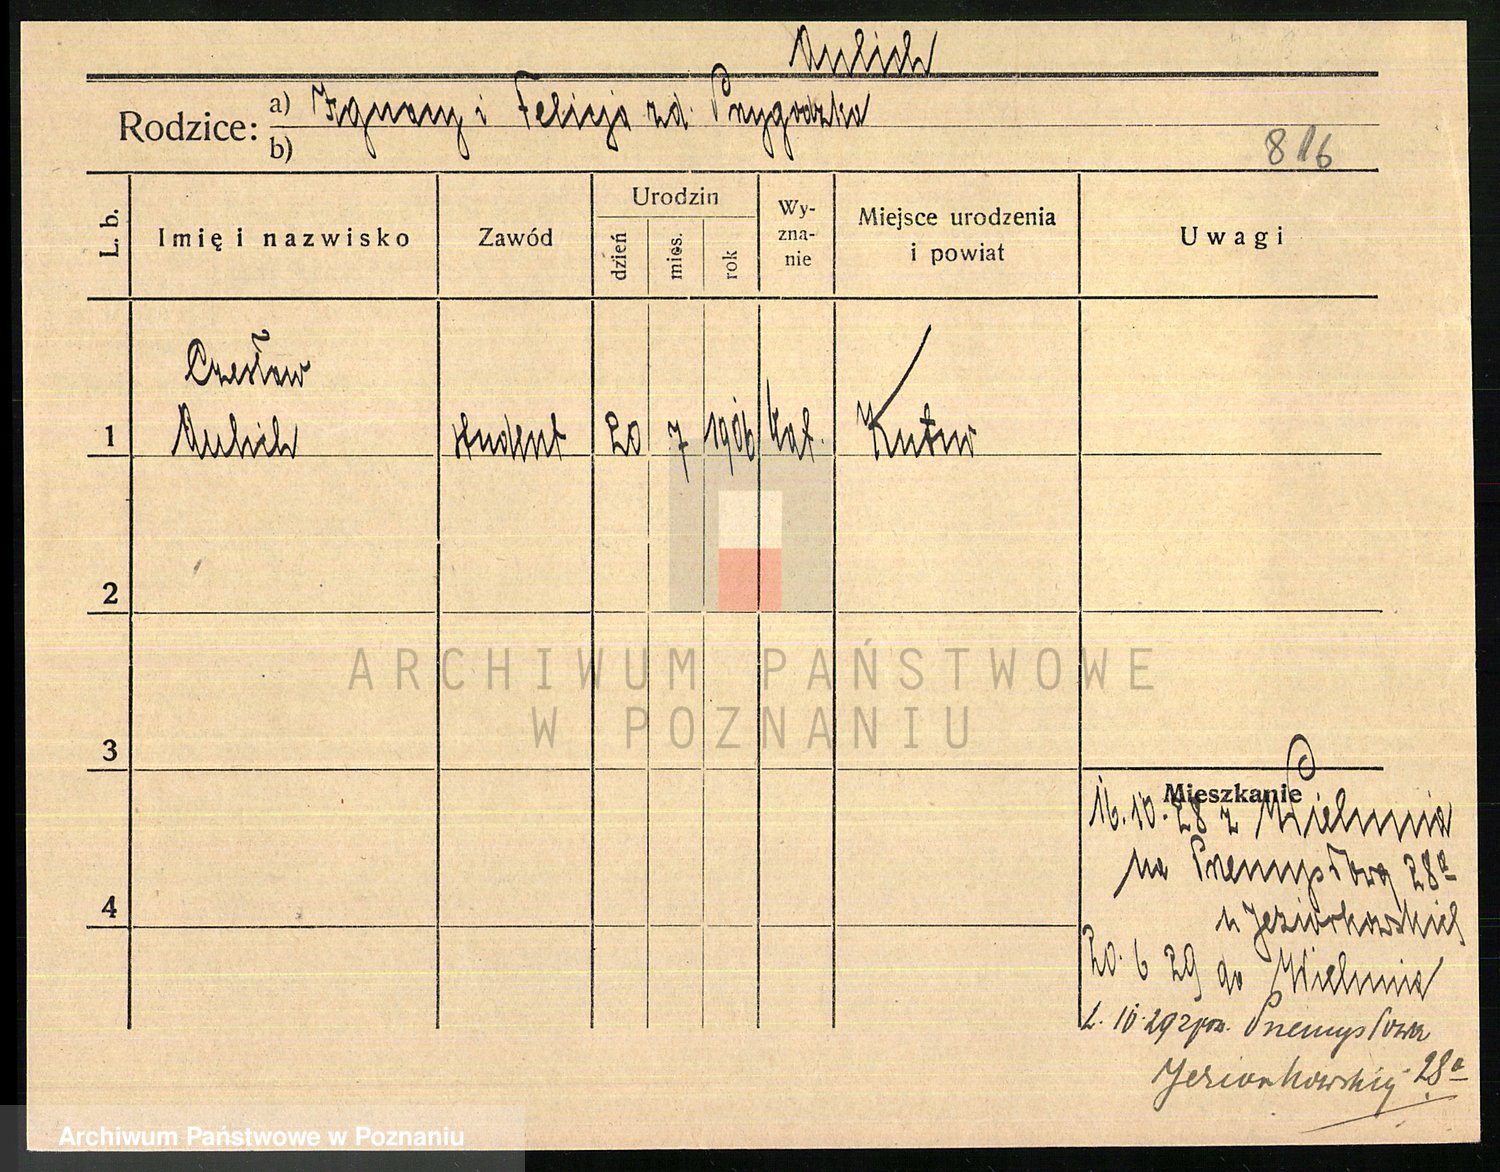 Aulich
Rodzice: a) Ignacy i Felicja zd. Przygodzka
b)
816
L. b.
Imię i nazwisko
Zawód
Urodzin
dzień
mies.
rok
Wy-
zna-
nie
Miejsce urodzenia
i powiat
Uwagi
Czesław
1 Aulich student 20 7 1906 kat. Kutno
2
3
4
ARCHIWUM PAŃSTWOWE
W POZNANIU
Mieszkanie
16.10.28 z Wielunia
na Przemysłową 28a
u Jeziorkowskiej
20. 6 29 do Wielunia
2. 10. 29 z pow. Przemysłowa
Jeziorkowskiej 28a
Archiwum Państwowe w Poznaniu